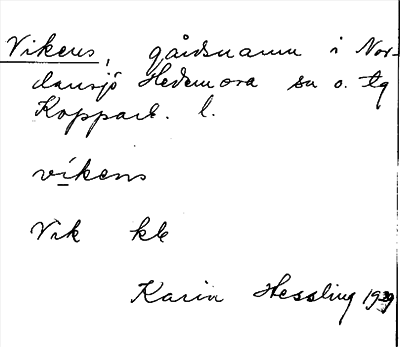 Vikens, gårdsnamn i Nor-
dansjö Hedemora sn o. tg
Kopparb. l.
víkens
Vik kb
Karin Hessling 1939